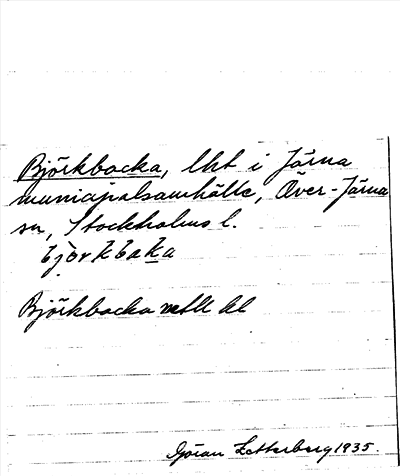 Björkbacka, lht i Järna
municipalsamhälle, Över-Järna
sn, Stockholms l.
bjòrkbaka
Björkbacka mtbl bl
Göran Zetterberg 1935.